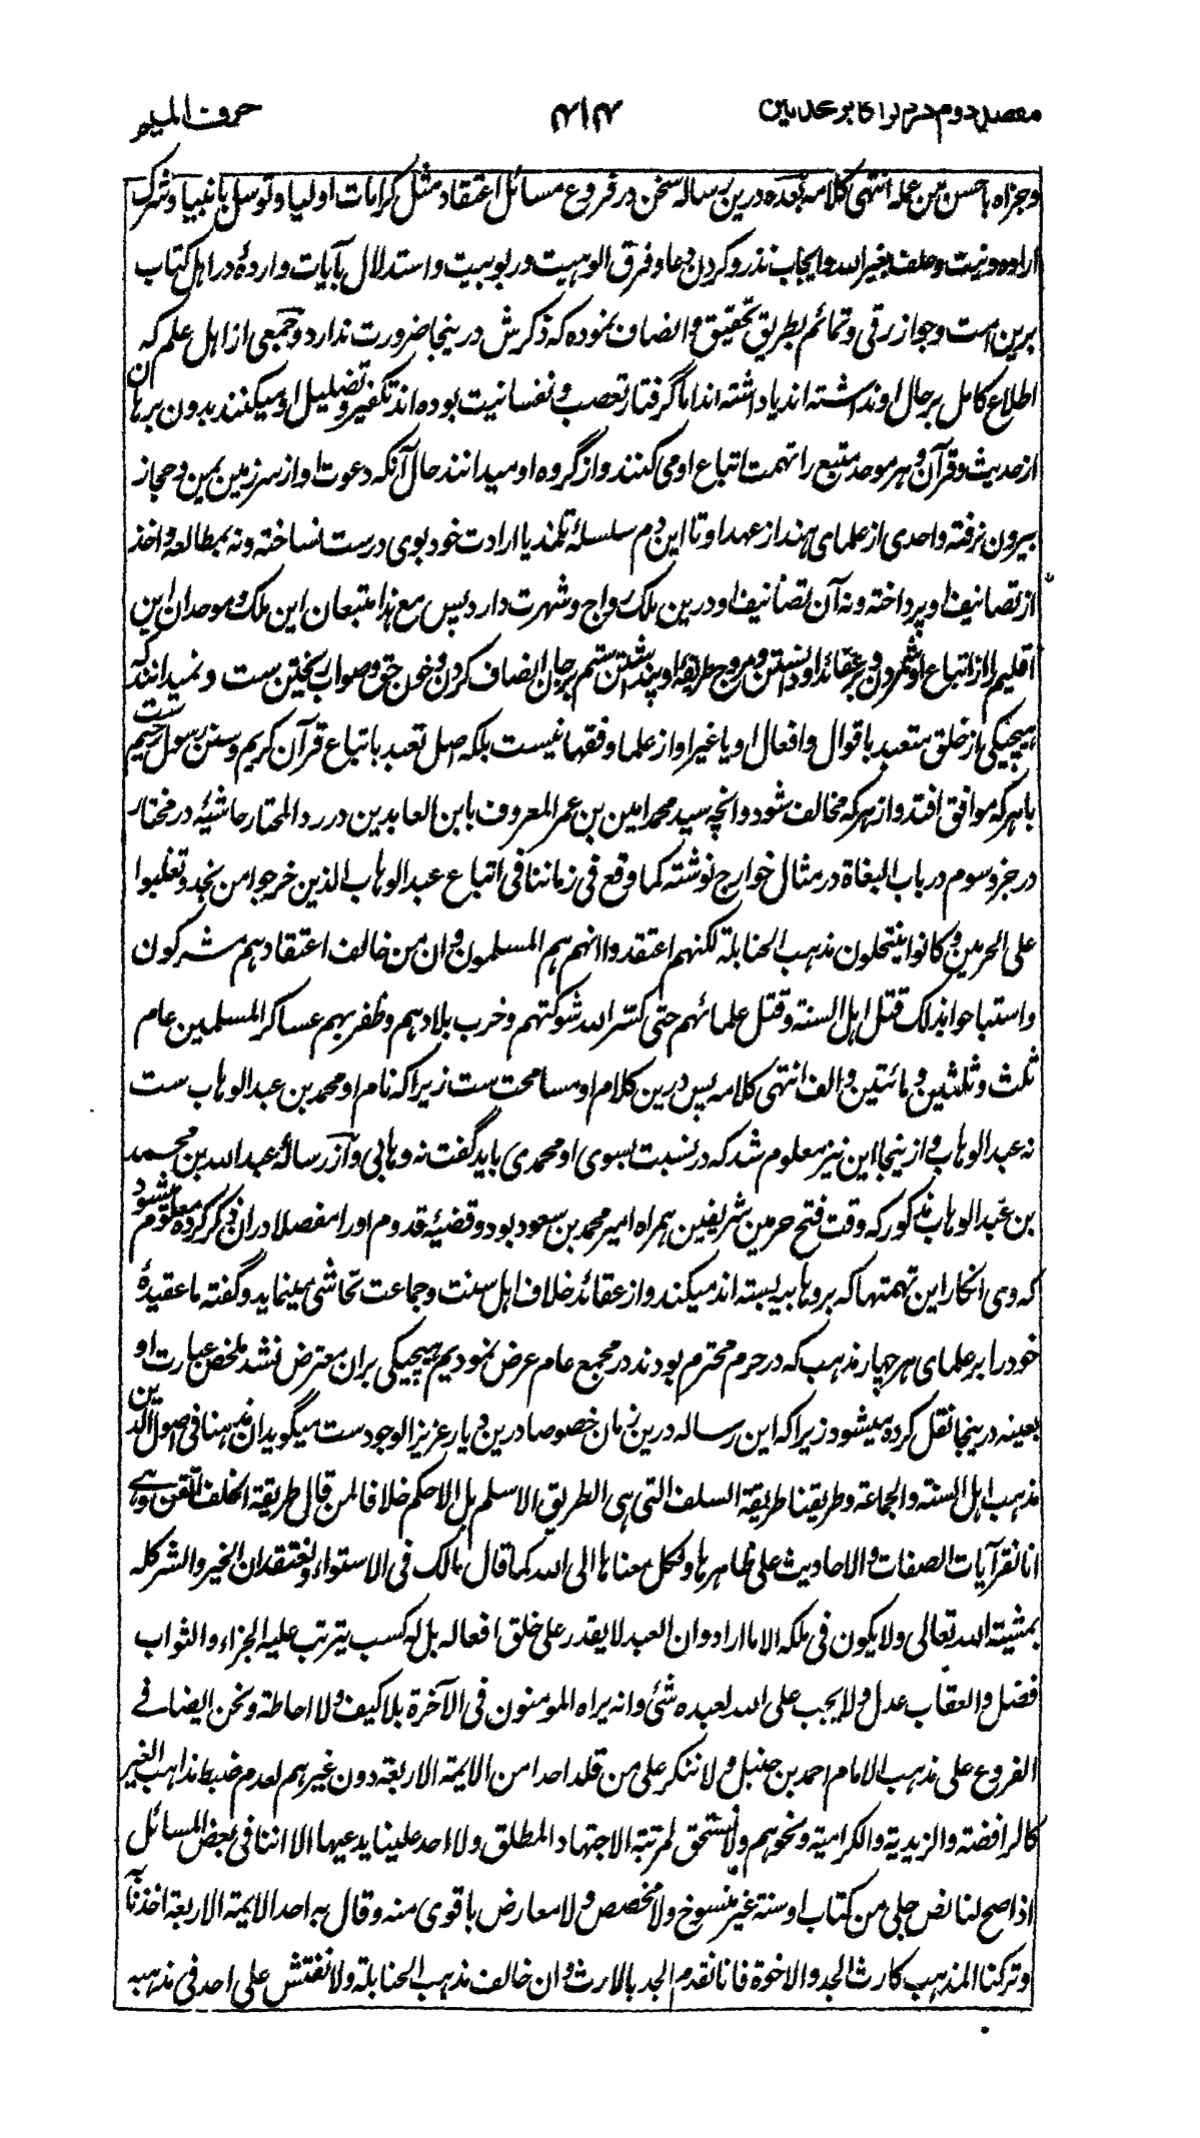 مقصد دوم در ذکر اکابر محدثین ۴۱۴ حرف المیم
وجزاه باحسن من عمله انتهی کلامه بعده درین رساله سخن در فروع مسائل اعتقاد مثل کرامات اولیا و توسل بانبیا و شرک
اراده و نیت و حلف بغیر الله و ایجاب نذر و کردن دعا و فرق الوهیت و ربوبیت و استدلال بآیات وارده در اهل کتاب
برین امت و جواز رقی و تمائم بطریق تحقیق و انصاف نموده که ذکرش درینجا ضرورت ندارد و جمعی از اهل علم که
اطلاع کامل بر حال او نداشته اند یا داشته اند اما گرفتار تعصب و نفسانیت بوده اند تکفیر و تضلیل او میکنند بدون برهان
از حدیث و قرآن و هر موحد متبع را تهمت اتباع او می کنند و از گروه او میدانند حال آنکه دعوت او از سرزمین یمن و حجاز
بیرون نرفته و احدی از علمای هند از عهد او تا این دم سلسلۀ تلمذ یا ارادت خود بوی درست نساخته و نه بمطالعه و اخذ
از تصانیف او پرداخته و نه آن تصانیف او درین ملک رواج و شهرت دارد پس مع هذا متبعان این ملک و موحدان این
اقلیم را از اتباع او شمردن و بر عقائد او دانستن و مروج طریقۀ او پنداشتن ستم بر جان انصاف کردن و خون حق و صواب ریختن ست و نمیدانند که
هیچیکی از خلق متعبد باقوال و افعال او یا غیر او از علما و فقها نیست بلکه اصل تعبد باتباع قرآن کریم و سنن رسول رحیم ست
با هر که موافق افتد و از هر که مخالف شود و انچه سید محمد امین بن عمر المعروف بابن العابدین در رد المحتار حاشیۀ در مختار
در جزو سوم در باب البغاة در مثال خوارج نوشته کما وقع فی زماننا فی اتباع عبد الوهاب الذین خرجوا من نجد و تغلبوا
علی الحرمین و کانوا ینتحلون مذهب الحنابلة لکنهم اعتقدوا انهم هم المسلمون و ان من خالف اعتقادهم مشرکون
و استباحوا بذلک قتل اهل السنة و قتل علمائهم حتی کسر الله شوکتهم و خرب بلادهم و ظفر بهم عساکر المسلمین عام
ثلث و ثلثین و مائتین و الف انتهی کلامه پس درین کلام او مسامحت ست زیرا که نام او محمد بن عبد الوهاب ست
نه عبد الوهاب و ازینجا این نیز معلوم شد که در نسبت بسوی او محمدی باید گفت نه وهابی و آز رسالۀ عبد الله بن محمد
بن عبد الوهاب مذکور که وقت فتح حرمین شریفین همراه امیر محمد بن سعود بود و قضیۀ قدوم او را مفصلا دران ذکر کرده معلوم میشود
که وی انکار این تهمتها که بر وهابیه بسته اند میکند و از عقائد خلاف اهل سنت و جماعت تحاشی مینماید و گفته ما عقیدۀ
خود را بر علمای هر چهار مذهب که در حرم محترم بودند در مجمع عام عرض نمودیم هیچیکی بران معترض نشد ملخص عبارت او
بعینه درینجا نقل کرده میشود زیرا که این رساله درین زمان خصوصا درین دیار عزیز الوجود ست میگوید ان مذهبنا فی اصول الدین
مذهب اهل السنة و الجماعة و طریقتنا طریقة السلف التی هی الطریق الاسلم بل الاحکم خلافا لمن قال طریقة الخلف اتقن و هے
انا نقر آیات الصفات و الاحادیث علی ظاهرها و نکل معناها الی الله کما قال مالک فی الاستواء و نعتقد ان الخیر و الشر کله
بمشیته الله تعالی و لا یکون فی ملکه الا ما اراد و ان العبد لا یقدر علی خلق افعاله بل له کسب یترتب علیه الجزاء و الثواب
فضل و العقاب عدل و لا یجب علی الله لعبده شئ و انه یراه المومنون فی الآخرة بلا کیف و لا احاطة و نحن ایضا فے
الفروع علی مذهب الامام احمد بن حنبل و لا ننکر علی من قلد احدا من الایمة الاربعة دون غیرهم لعدم ضبط مذاهب الغیر
کالرافضة و الزیدیة و الکرامیة و نحوهم و لا نستحق لمرتبة الاجتهاد المطلق و لا احد علینا یدعیها الا اننا فی بعض المسائل
اذا صح لنا نص جلی من کتاب او سنة غیر منسوخ و لا مخصص و لا معارض باقوی منه و قال به احد الایمة الاربعة اخذنا به
و ترکنا المذهب کارث الجد و الاخوة فانا نقدم الجد بالارث و ان خالف مذهب الحنابلة و لا نفتش علی احد فی مذهبه